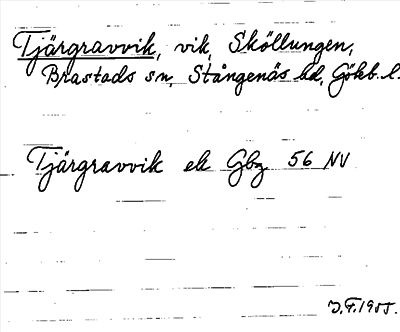 Tjärgravvik, vik, Sköllungen,
Brastads sn, Stångenäs hd, Gökb. l.
Tjärgravvik ek Gbg 56 NV
J.F. 1955.